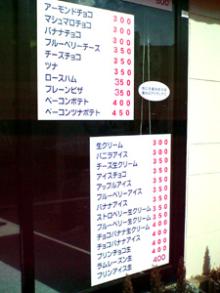 アーモンドチョコ 300
マシュマロチョコ 300
バナナチョコ 300
ブルーベリーチーズ 350
チーズチョコ 350
ツナ 350
ロースハム 350
プレーンピザ 350
ベーコンポテト 400
ベーコンツナポテト 450
生クリーム 300
バニラアイス 300
チーズ生クリーム 350
アイスチョコ 350
アップルアイス 350
ブルーベリーアイス 350
バナナアイス 350
ストロベリー生クリーム 350
ブルーベリー生クリーム 350
チョコバナナ生クリーム 400
チョコバナナアイス 400
プリンチョコ生 400
ラムレーズン生 400
プリンアイス生